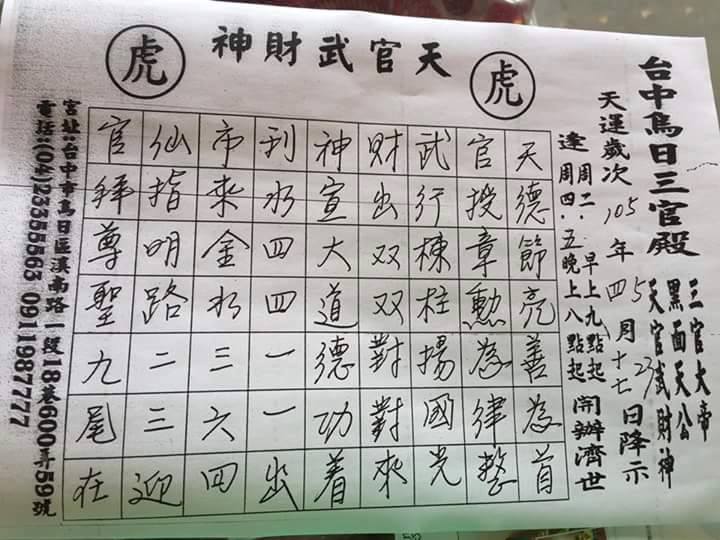 台中烏日三官殿
三官大帝
黑面天公
天官武財神
天運歲次105年四5月十七23日降示
逢周二.早上九點起
周四.五晚上八點起
開辦濟世
虎
天官武財神
虎
天德節亮善為首
官授章勳為律整
武行棟柱揚國光
財出双双對對來
神宣大道德功着
到水四四一一出
市來金水三六四
仙指明路二三迎
官拜尊聖九尾在
宮址:台中市烏日區溪南路一段18巷600弄59號
電話:(04)23355563 0911987777